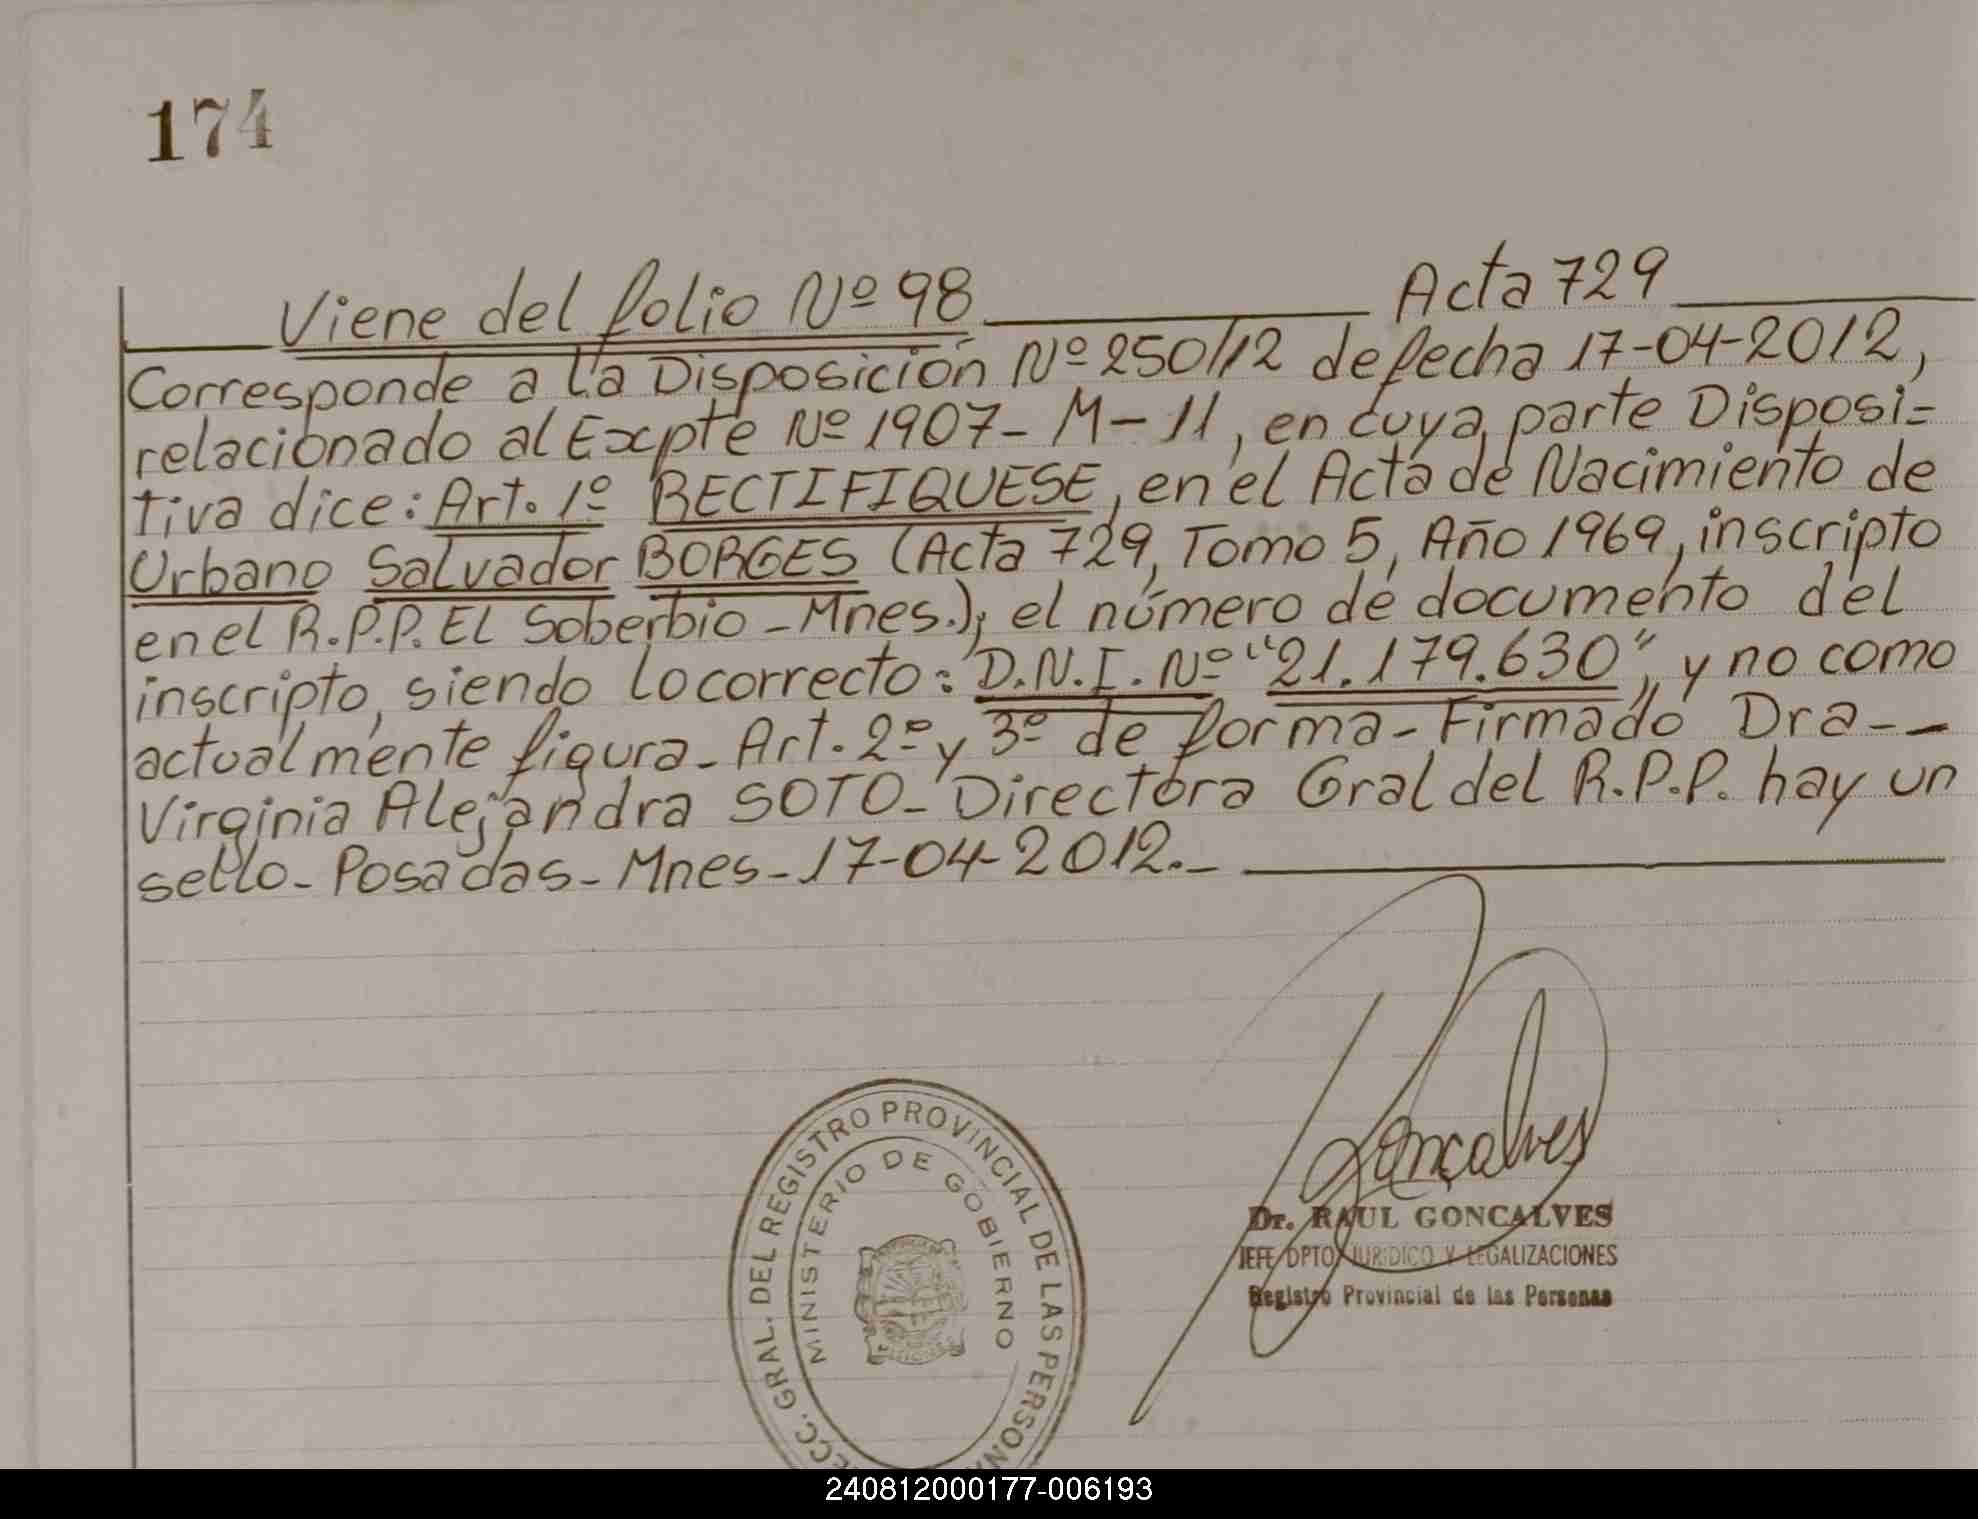 174
Viene del folio Nº 98 Acta 729
Corresponde a la Disposición Nº 250/12 de fecha 17-04-2012,
relacionado al Expte Nº 1907-M-11, en cuya parte Disposi=
tiva dice: Art. 1º RECTIFIQUESE, en el Acta de Nacimiento de
Urbano Salvador BORGES (Acta 729, Tomo 5, Año 1969, inscripto
en el R.P.P. El Soberbio - Mnes.); el número de documento del
inscripto, siendo lo correcto: D.N.I. Nº "21.179.630", y no como
actualmente figura- Art. 2º y 3º de forma- Firmado Dra--
Virginia Alejandra SOTO- Directora Gral del R.P.P. hay un
sello- Posadas- Mnes- 17-04-2012.-
Goncalves
Dr. RAUL GONCALVES
JEFE DPTO. JURIDICO Y LEGALIZACIONES
Registro Provincial de las Personas
ECC. GRAL. DEL REGISTRO PROVINCIAL DE LAS PERSONA
MINISTERIO DE GOBIERNO
240812000177-006193